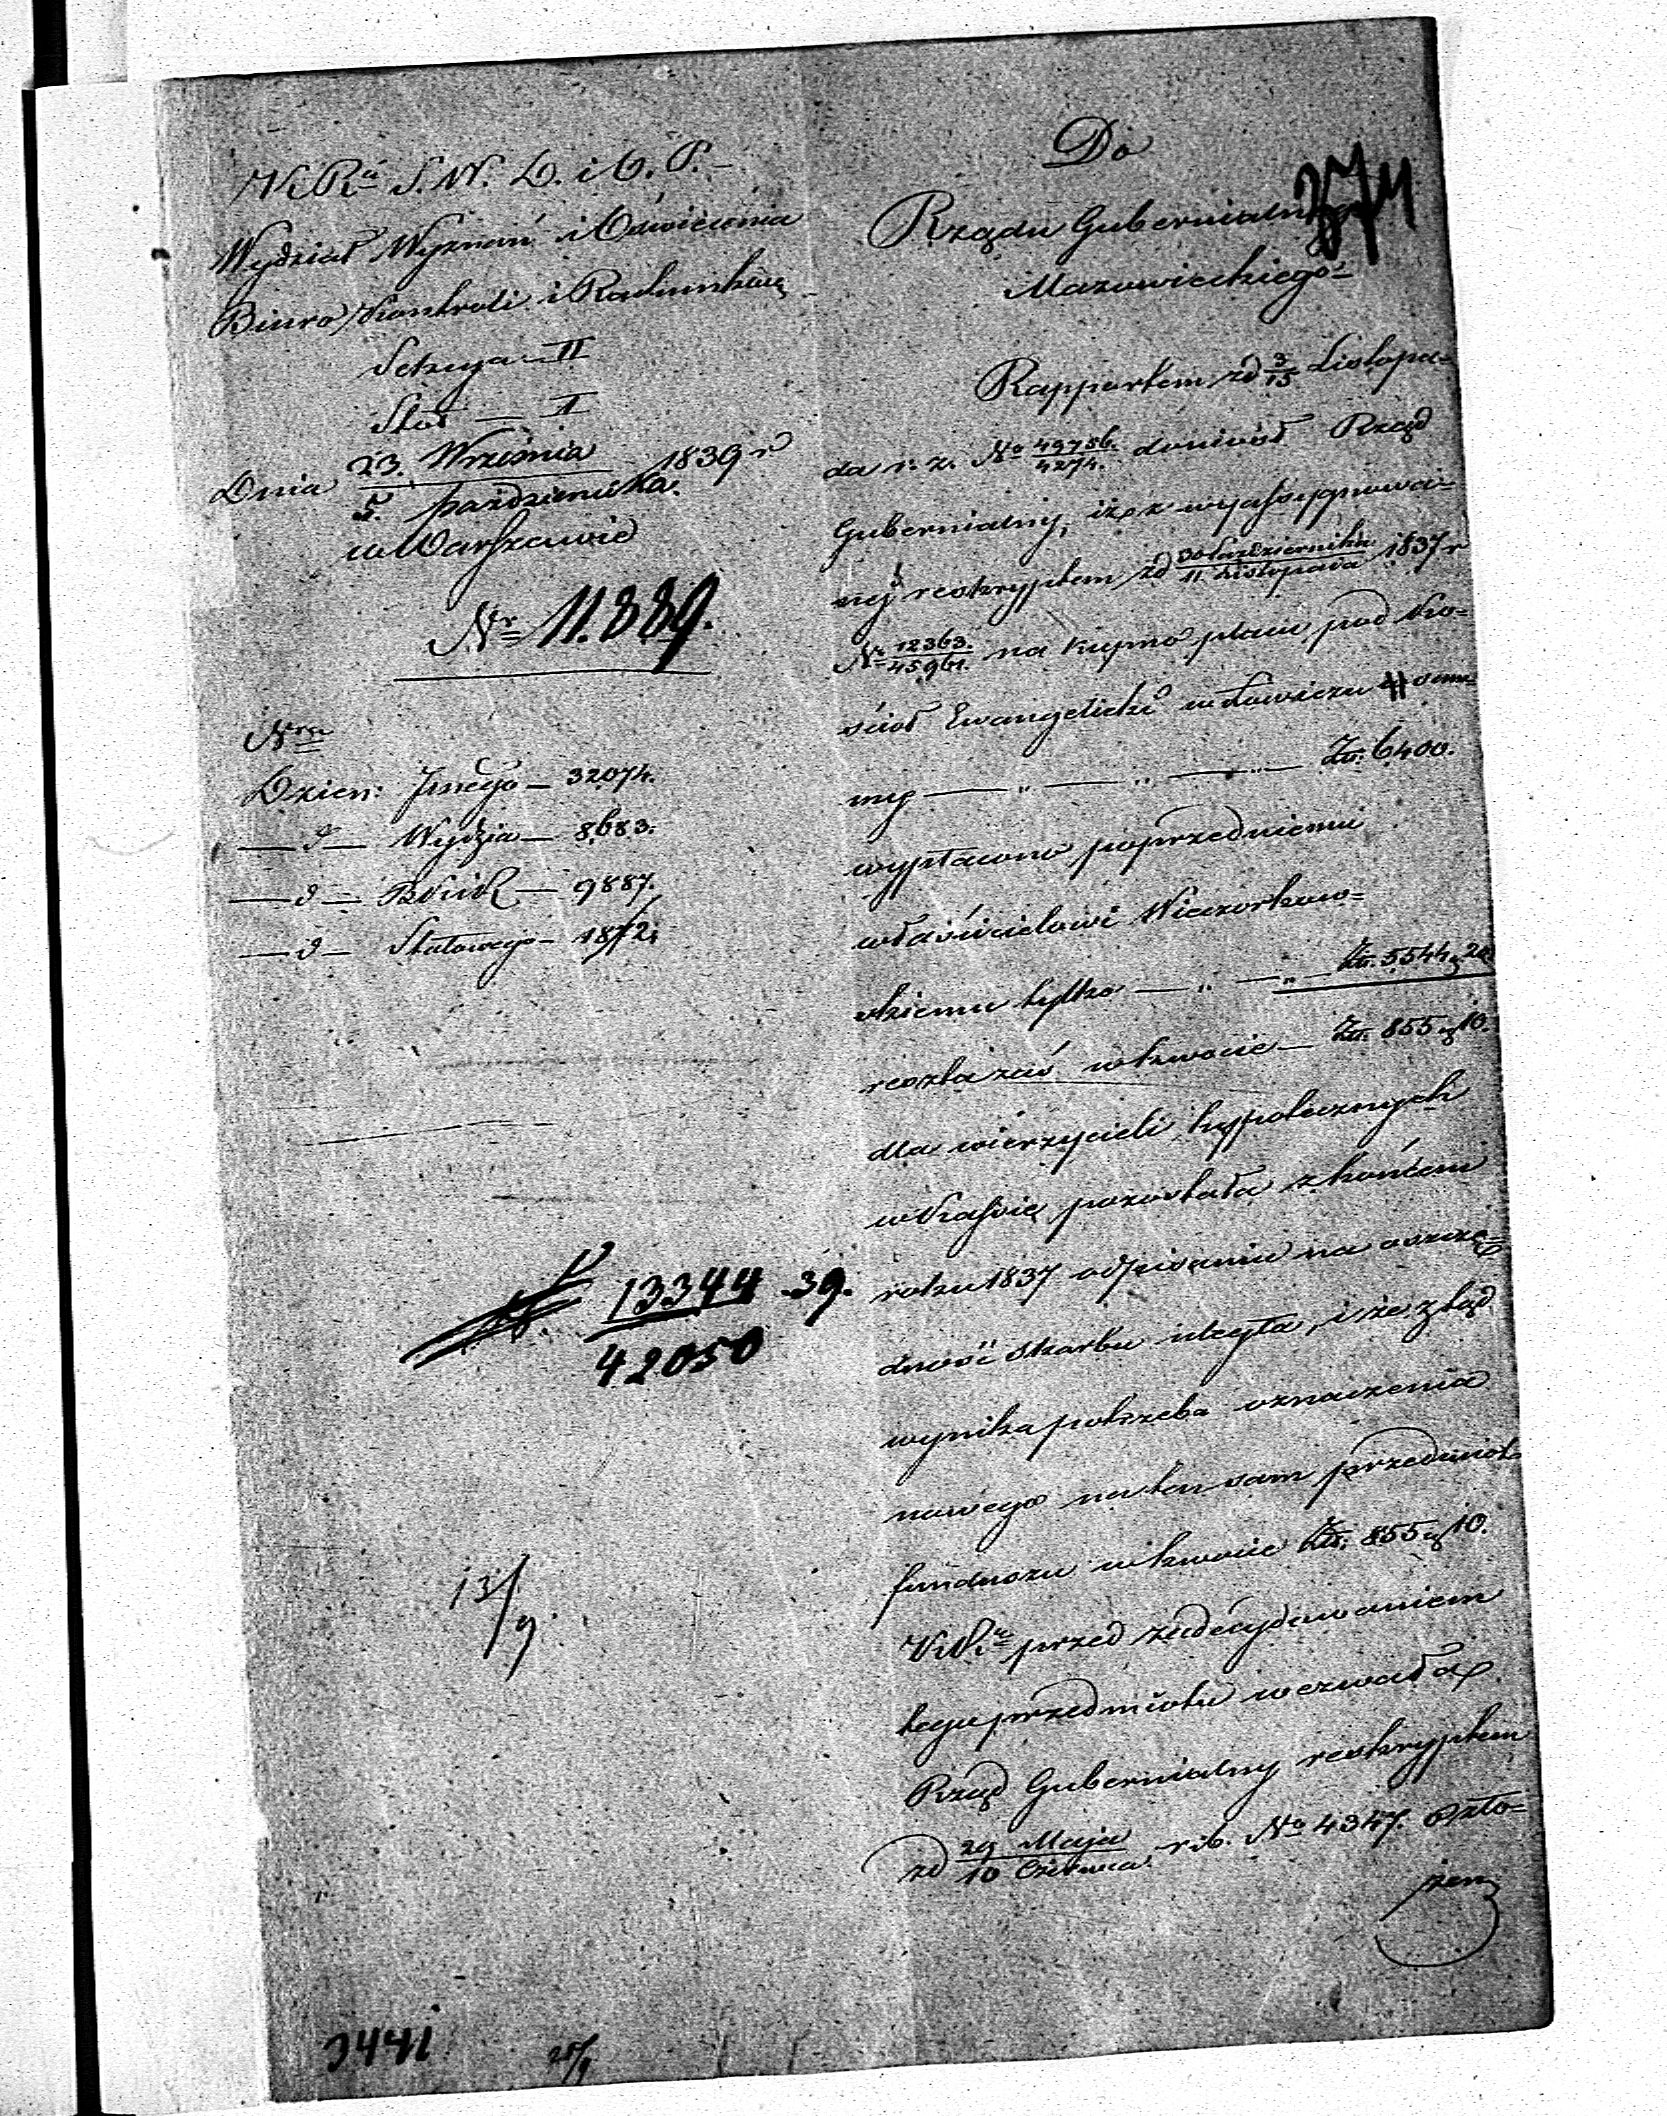 K. R.a S. W. D. i O. P.
Wydział Wyznań i Oświecenia
Biuro Kontroli i Rachunkow.
Sekcya II
Stół — I
Dnia 23. Września / 5. października 1839 r
w Warszawie
Nr 11.889.
Nra
Dzien: Jnego — 32074.
— d — Wydzia — 8683.
— d — — 9887.
— d — Stołowego — 1872.
13344 - 39.
42050
13/9.
3441
Do
Rządu Gubernialnego
Mazowieckiego
374
Rapportem zd 3/15 Listopa=
da r. z. No 49756./4274. doniósł Rząd
Gubernialny, iż z wyassygnowa=
nej reskryptem zd 30 Października / 11 Listopada 1837 r
No 12363./45961. na kupno placu pod Ko=
sciół Ewangelicki w Łowiczu summy
my — „ — „ — Zł: 6400.
wypłacono poprzedniemu
właścicielowi Wieczorkow=
skiemu tylko — „ — „ — Zł. 5544 g 20
reszta zaś w kwocie — Zł. 855 g 10.
dla wierzycieli hypotecznych
w Kassie pozostała z końcem
roku 1837 odpisaniu na oszczę=
dność skarbu uległa, i że ztąd
wynika potrzeba oznaczenia
nowego na ten sam przedmiot
funduszu w kwocie Zł: 855 g 10.
K. R.a przed zadecydowaniem
tego przedmiotu wezwała
Rząd Gubernialny reskryptem
zd 29 Maja / 10 Czerwca r. b. No 4347. o zło=
żen